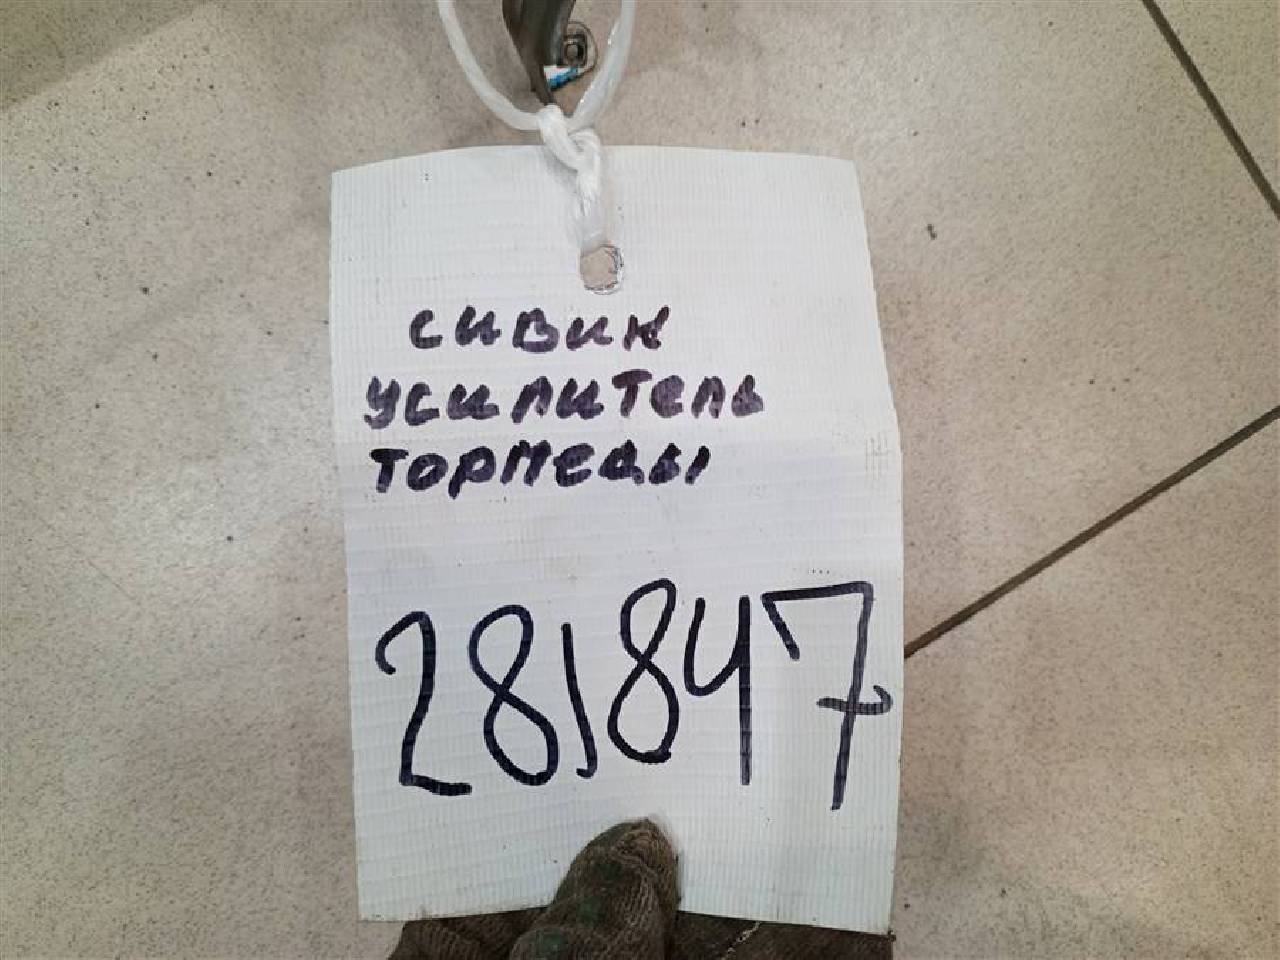 сивик
усилитель
торпеды
281847